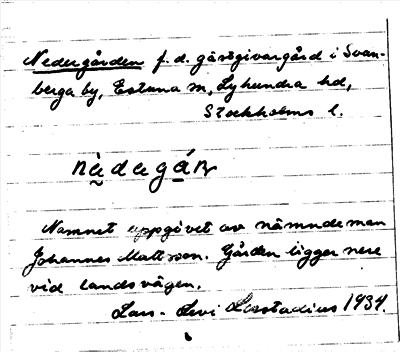 Nedergården f. d. gästgivargård i Svan-
berga by, Estuna sn, Lyhundra hd,
Stockholms l.
Namnet uppgivet av nämndeman
Johannes Mattsson. Gården ligger nere
vid landsvägen.
Lars-Levi Læstadius 1934.